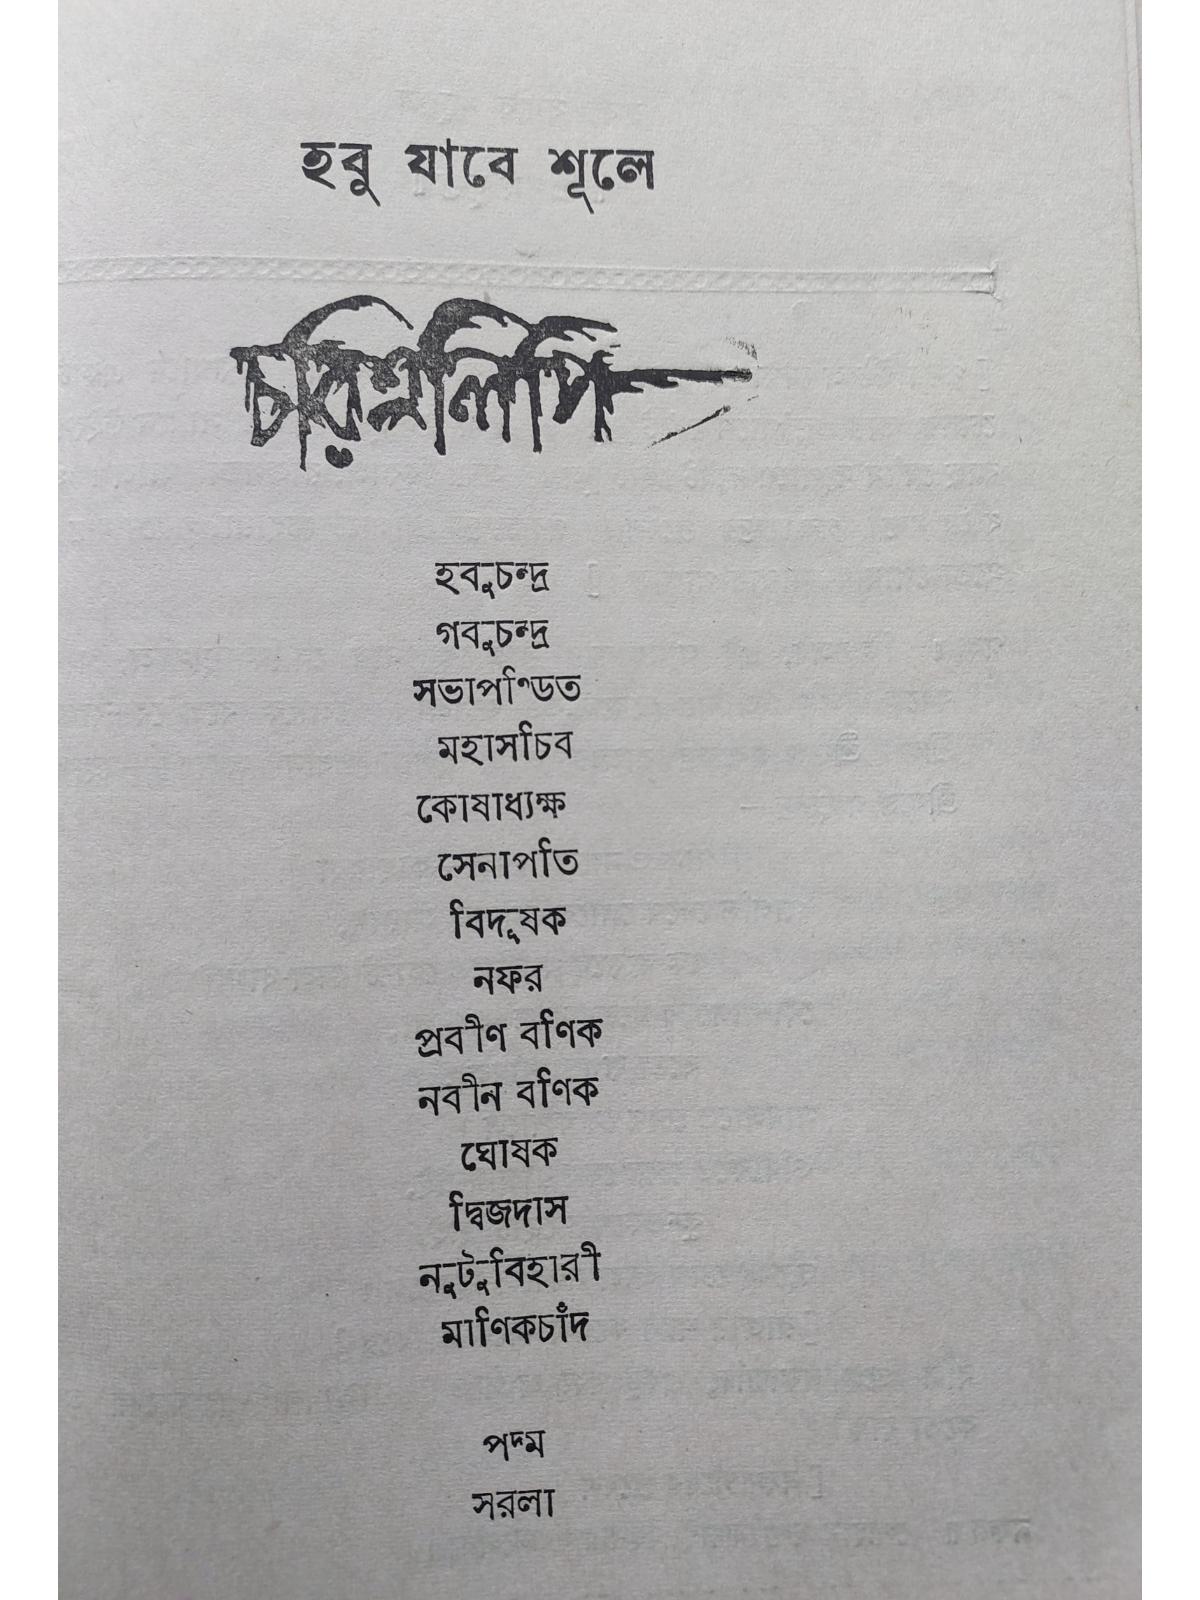 হবু যাবে শূলে
চরিত্রলিপি
হবুচন্দ্র
গবুচন্দ্র
সভাপণ্ডিত
মহাসচিব
কোষাধ্যক্ষ
সেনাপতি
বিদূষক
নফর
প্রবীণ বণিক
নবীন বণিক
ঘোষক
দ্বিজদাস
নুটুবিহারী
মাণিকচাঁদ
পদ্ম
সরলা